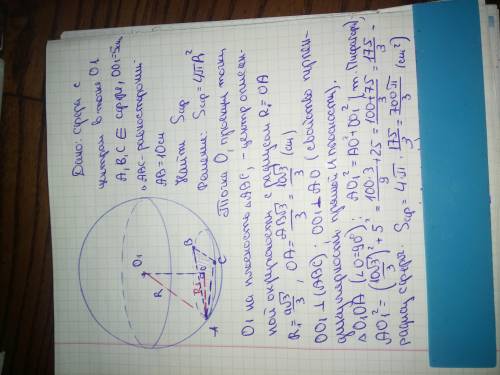 Дано: сфера с
центром в точке O1
A, B, C ∈ сфере, OO1=5см
△ABC - равносторонний
AB=10см
Найти Sсф
Решение: Sсф=4πR²
Точка O, проекция точки
O1 на плоскость △ABC, - центр описан-
ной окружности с радиусом R1=OA
R1=a√3/3, OA=AB√3/3=10√3/3 (см)
OO1⊥(ABC). OO1⊥AO (свойство перпен-
дикулярности прямой и плоскости).
△O1OA (∠O=90°): AO1²=AO²+OO1² (т. Пифагора)
AO1²=(10√3/3)²+5²=100·3/9+25=100+75/3=175/3 -
радиус сферы. Sсф=4π·175/3=700π/3 (см²)
O1
R
B
R1
O
C
A